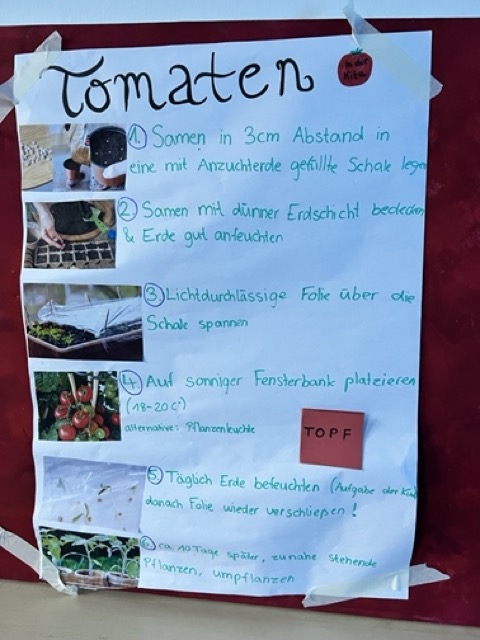 Tomaten
in der
Kita
1. Samen in 3cm Abstand in
eine mit Anzuchterde gefüllte Schale legen
2. Samen mit dünner Erdschicht bedecken
& Erde gut anfeuchten
3. Lichtdurchlässige Folie über die
Schale spannen
4. Auf sonniger Fensterbank platzieren
(18-20 C°)
alternative: Pflanzenleuchte
TOPF
5. Täglich Erde befeuchten (Aufgabe der
danach Folie wieder verschließen!
6. ca. 10 Tage später, zu nahe stehende
Pflanzen, umpflanzen